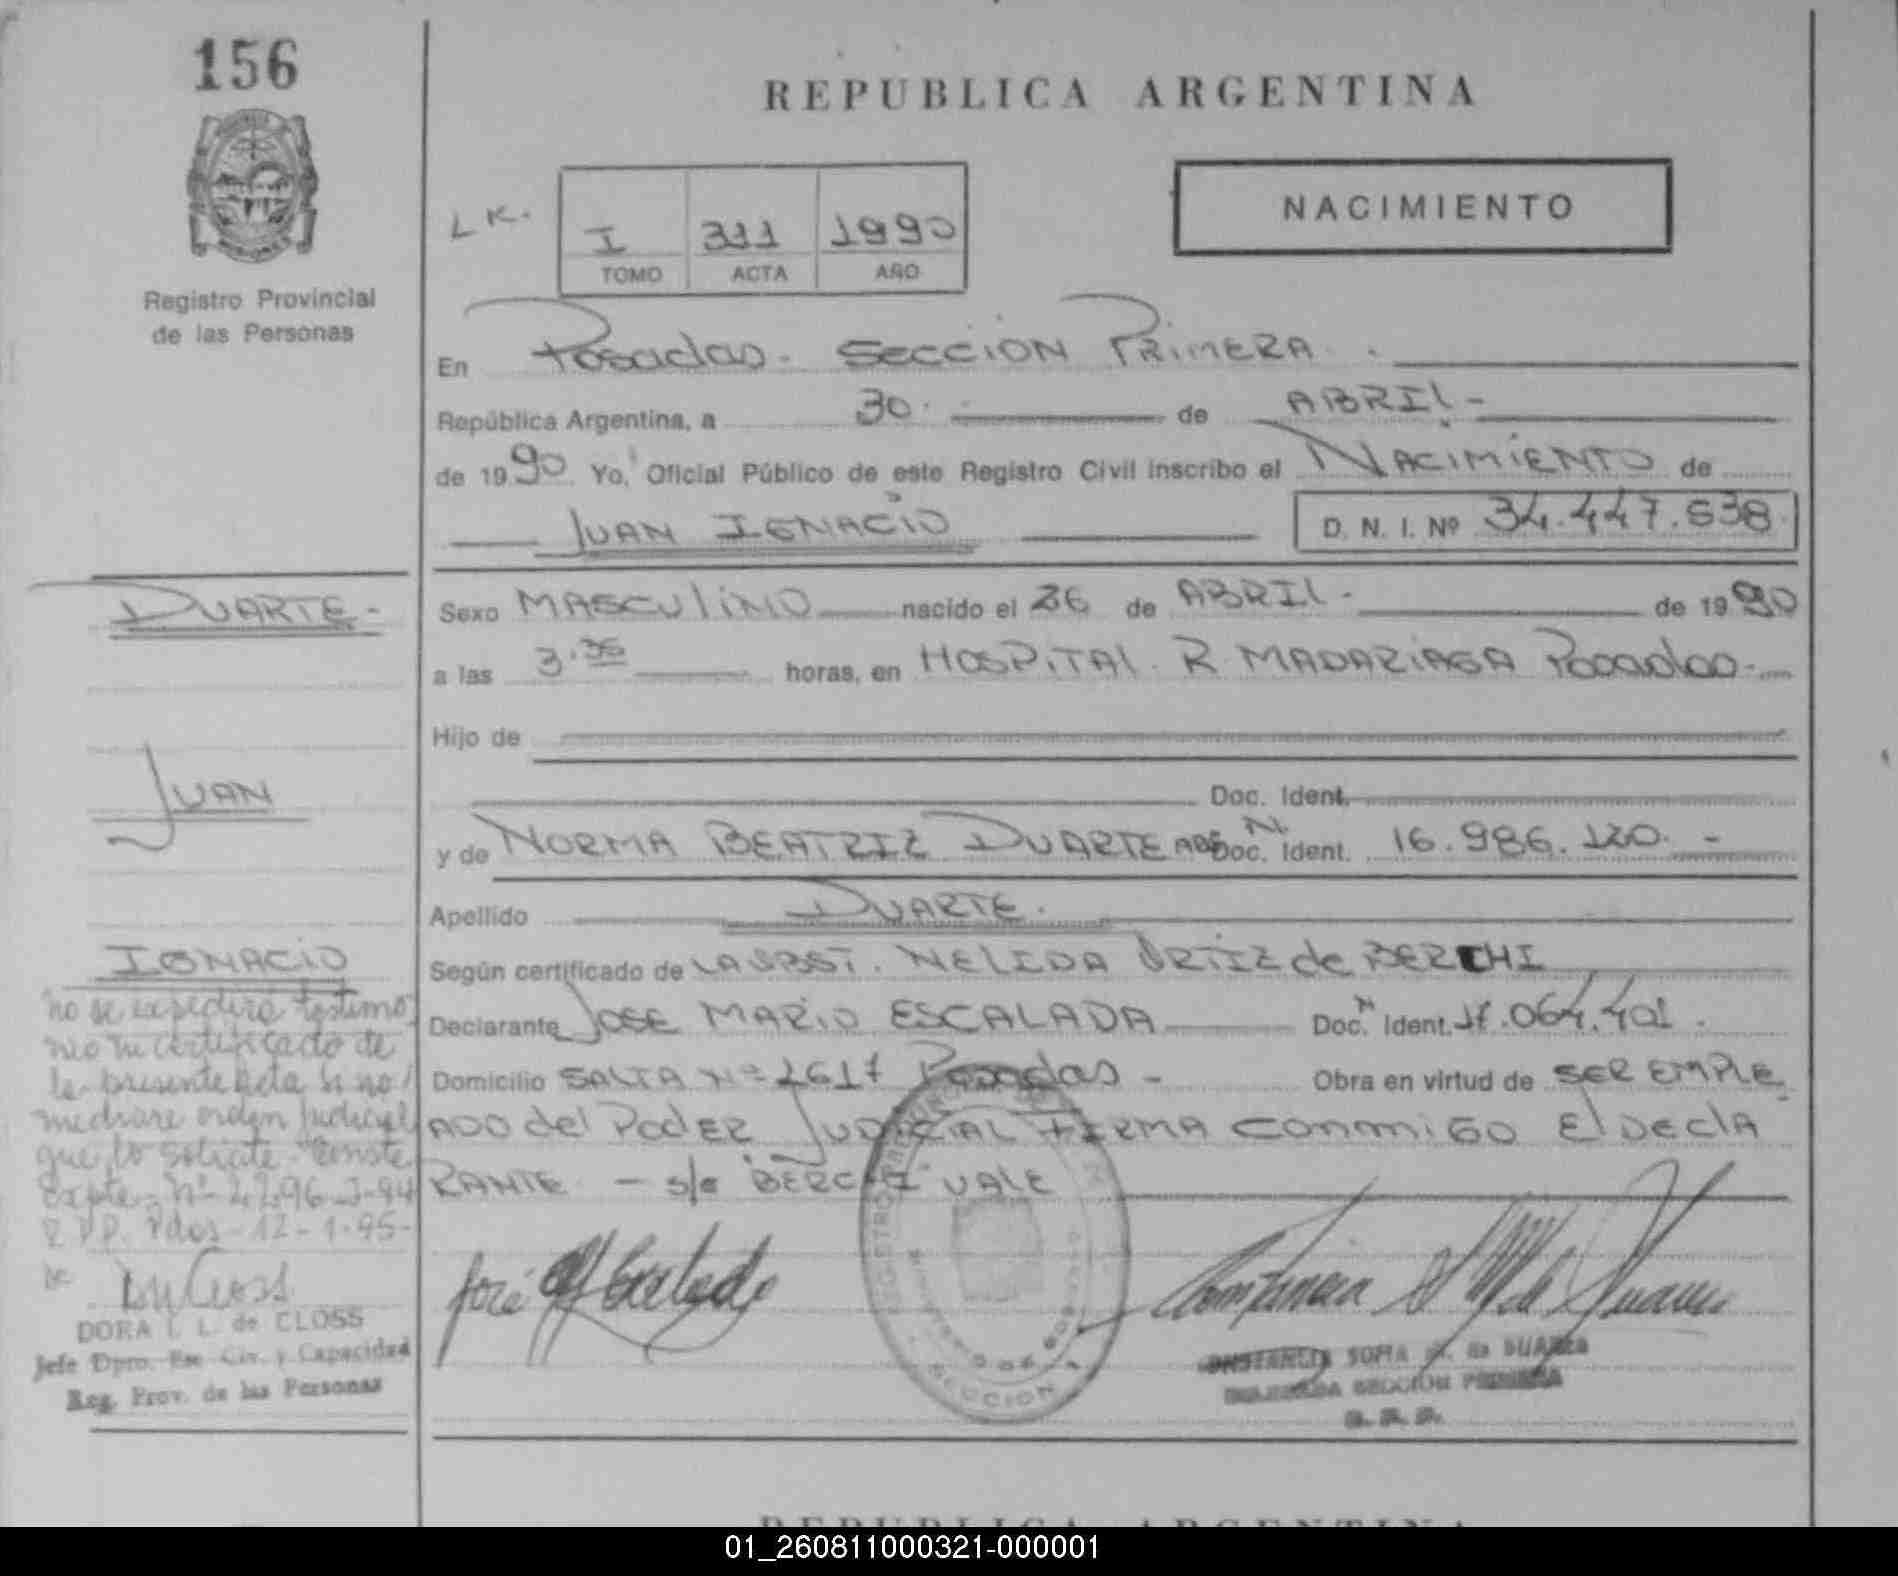 156
REPUBLICA ARGENTINA
NACIMIENTO
LK.
I 311 1990
TOMO ACTA AÑO
Registro Provincial
de las Personas
En Posadas. SECCION PRIMERA.
República Argentina, a 30. de ABRIL-
de 1990 Yo, Oficial Público de este Registro Civil inscribo el NACIMIENTO de
JUAN IGNACIO D. N. I. Nº 34.447.638
DUARTE-
Sexo MASCULINO nacido el 26 de ABRIL- de 1990
a las 3.35 horas, en HOSPITAL R MADARIAGA Posadas-
Hijo de
Doc. Ident.
JUAN
y de NORMA BEATRIZ DUARTE Doc. Ident. 16.986.120.-
Apellido DUARTE.
IGNACIO
Según certificado de LA OBST. NELIDA ORTIZ de BERCHI
Declarante JOSE MARIO ESCALADA Doc. Ident. 064.401.
Domicilio SALTA Nº 1617 Posadas- Obra en virtud de SER EMPLE
ADO del PODER JUDICIAL FIRMA conmigo El DECLA
RANTE - s/r BERCHI VALE
no se expedirá testimo
nio ni certificado de
la presente acta si no
mediare orden judicial
que lo solicite. Conste
Expte. Nº 2296-J-94
R.P.P. Pdas-12-1-95-
DORA I. L. de CLOSS
Jefe Dpto. Est. Civ. y Capacidad
Reg. Prov. de las Personas
José M Escalada
REGISTRO
MINISTERIO DE GOBIERNO
SECCION 1
CONSTANCIA SOFIA M. de SUAREZ
DELEGADA SECCION PRIMERA
R. P. P.
REPUBLICA ARGENTINA
01_260811000321-000001